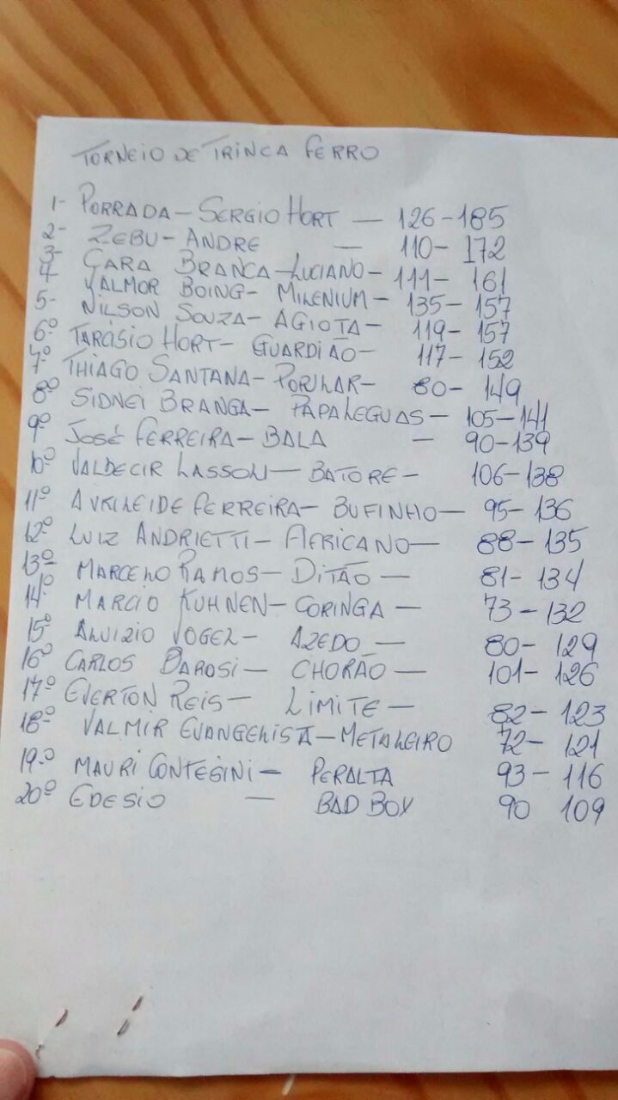 TORNEIO DE TRINCA FERRO
1- PORRADA - SERGIO HORT - 126-185
2- ZEBU - ANDRE - 110-172
3- CARA BRANCA - LUCIANO - 111-161
4- VALMOR BOING - MILENIUM - 135-157
5- NILSON SOUZA - AGIOTA - 119-157
6º TARCÍSIO HORT - GUARDIÃO - 117-152
7º THIAGO SANTANA - POPULAR - 80-149
8º SIDNEI BRANGA - PAPALEGUAS - 105-141
9º JOSÉ FERREIRA - BALA - 90-139
10º VALDECIR LASSON - BATORE - 106-138
11º FERREIRA - BUFINHO - 95-136
12º LUIZ ANDRIETTI - AFRICANO - 88-135
13º MARCELO RAMOS - DITÃO - 81-134
14º MARCIO KUHNEN - CORINGA - 73-132
15º ALUIZIO VOGEL - AZEDO - 80-129
16º CARLOS BAROSI - CHORÃO - 101-126
17º EVERTON REIS - LIMITE - 82-123
18º VALMIR EVANGELISTA - METALEIRO 72-121
19º MAURI CONTESINI - PERALTA 93-116
20º EDESIO - BAD BOY 90 109